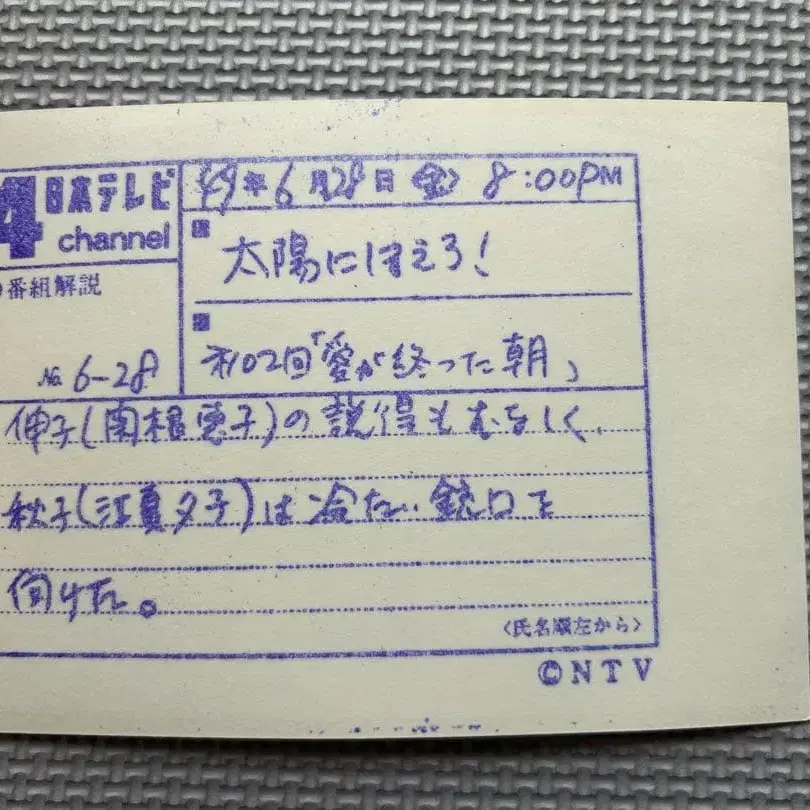 4 日本テレビ
channel
番組解説
No. 6-28
49年6月28日(金) 8:00PM
太陽にほえろ!
オ102回「愛が終った朝」
伸子(関根恵子)の説得もむなしく、
秋子(江夏夕子)は冷たい銃口を
向けた。
<氏名順左から>
©NTV